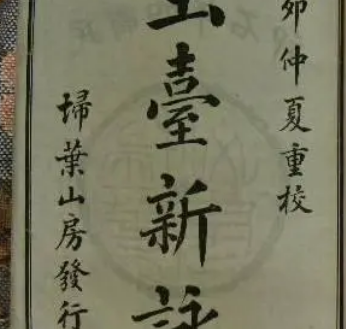 卯仲夏重校
玉臺新詠
掃葉山房發行